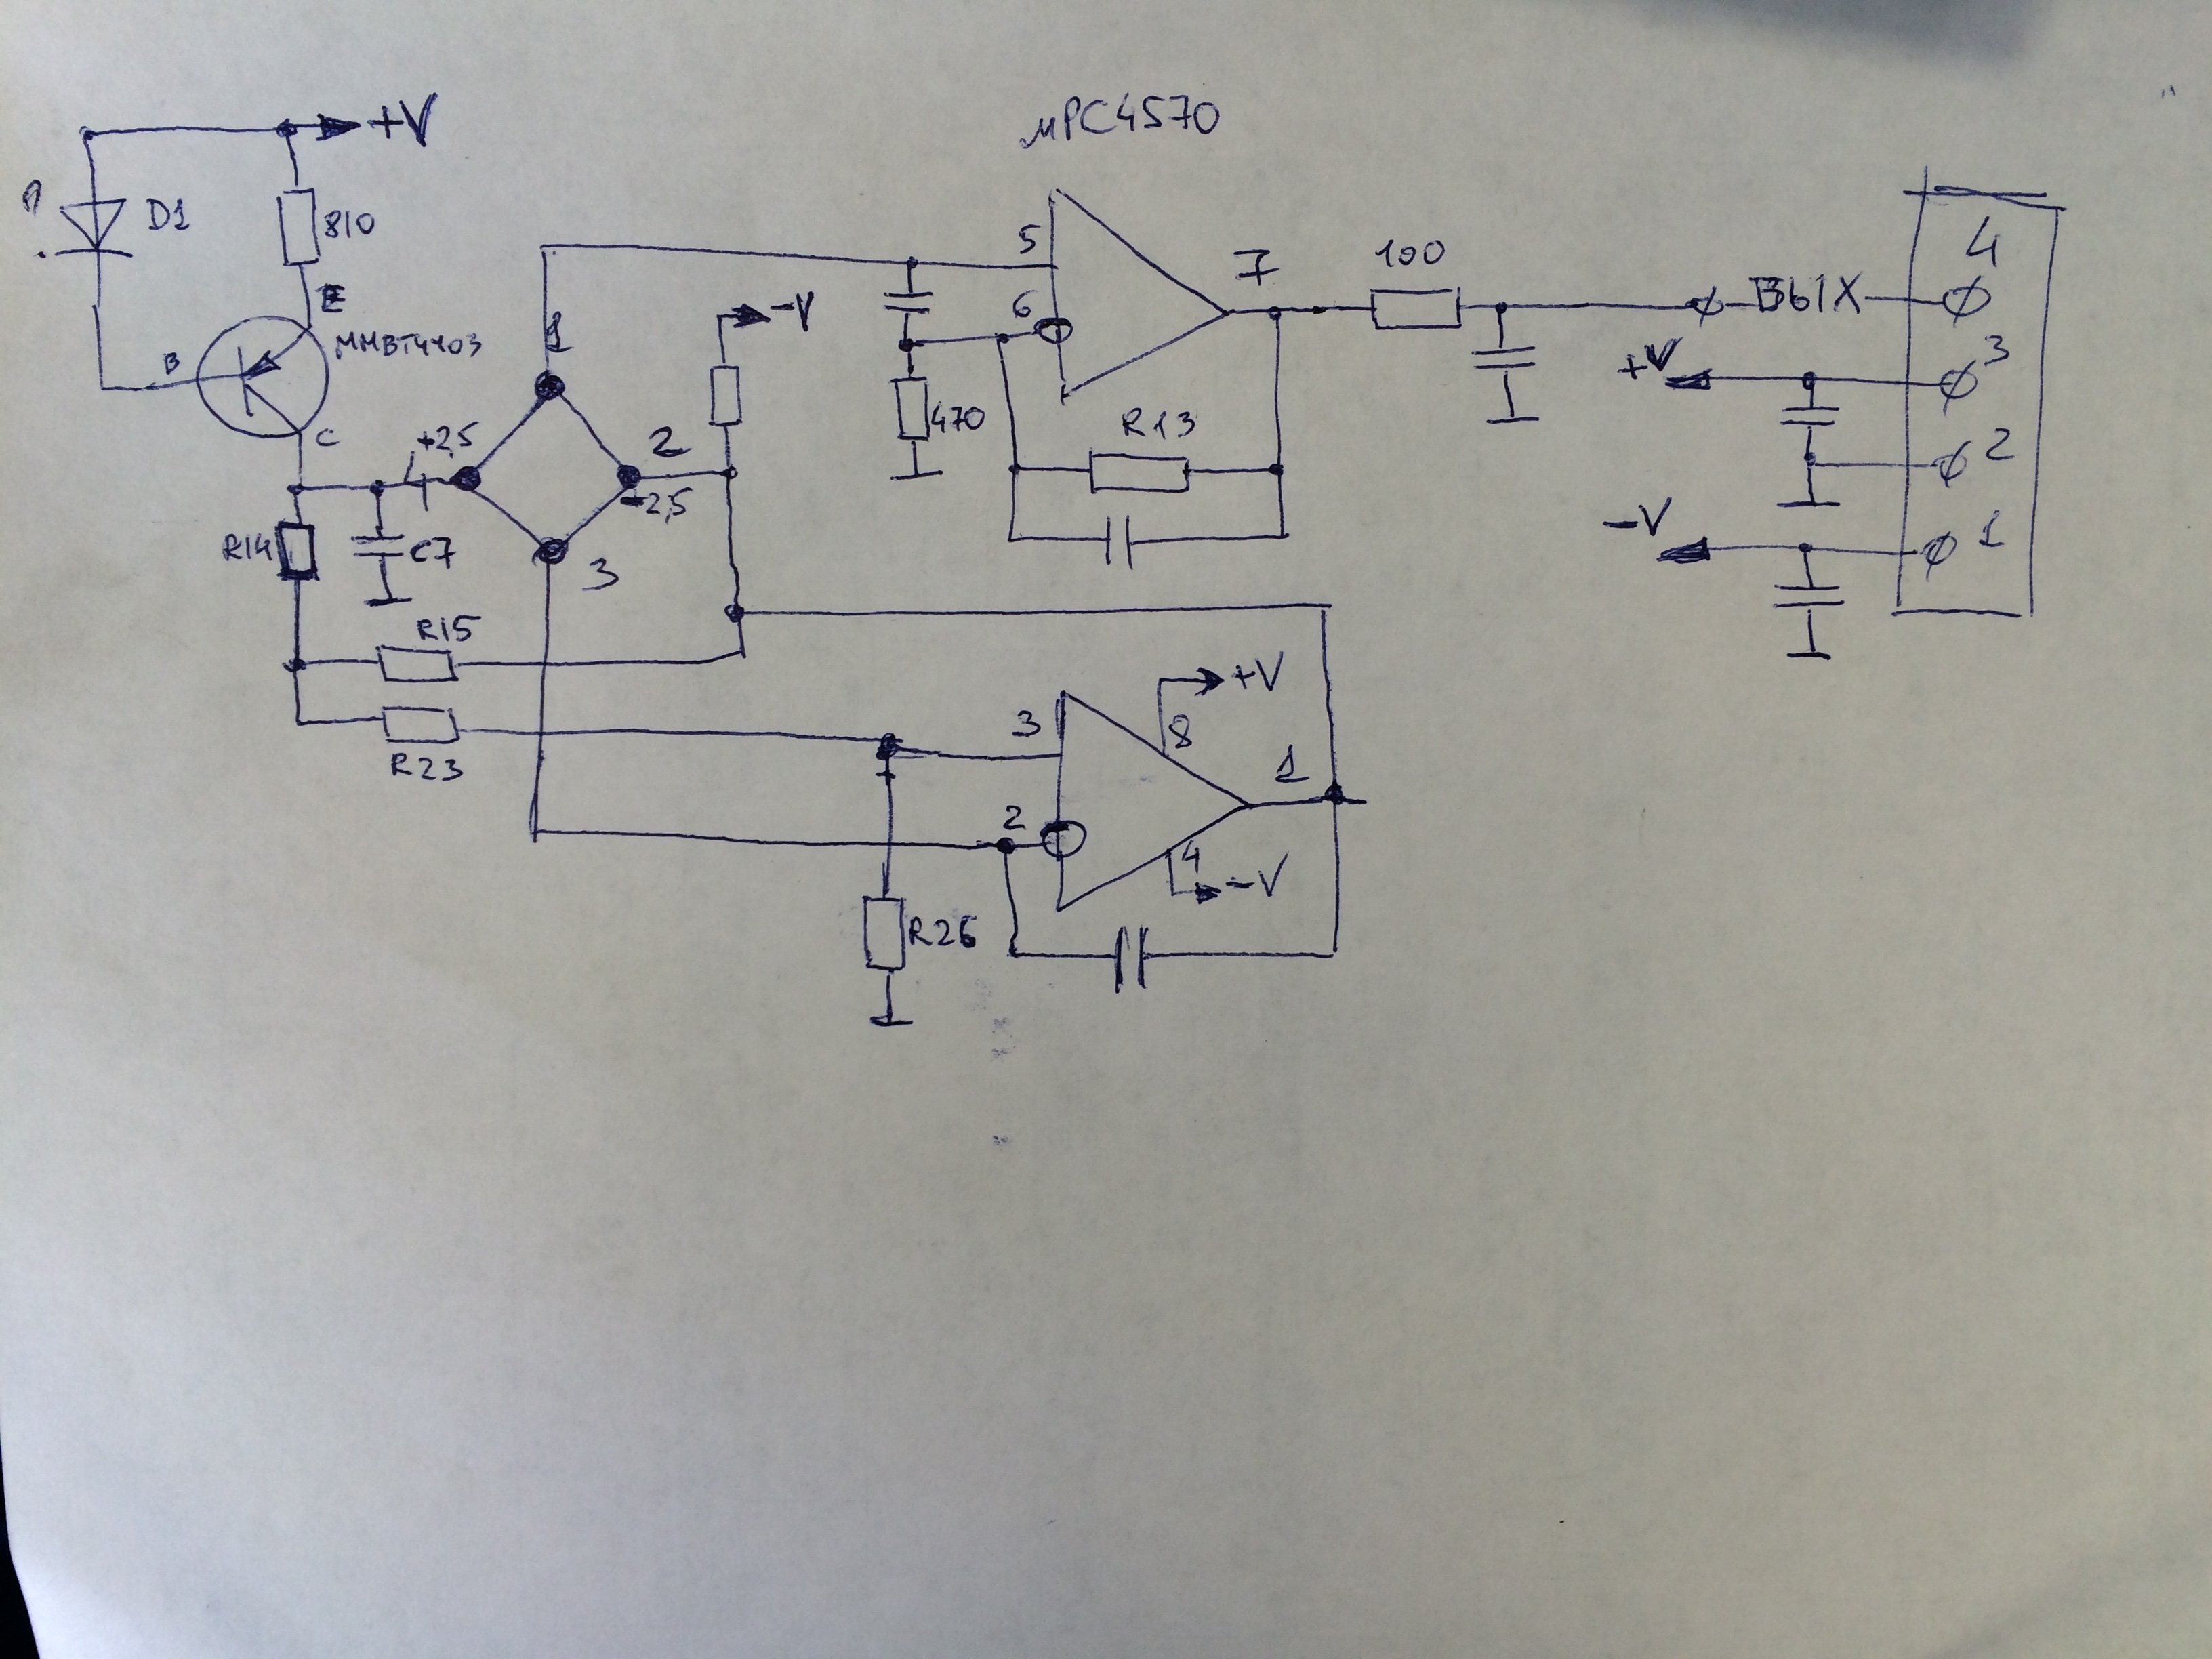 μPC4570
+V
D1
810
E
B
MMBT4403
C
+2,5
4
1
2
-2,5
3
-V
R14
C7
R15
R23
5
6
7
470
R13
100
ВЫХ
4
+V
3
2
-V
1
3
+V
8
1
2
4
-V
R26